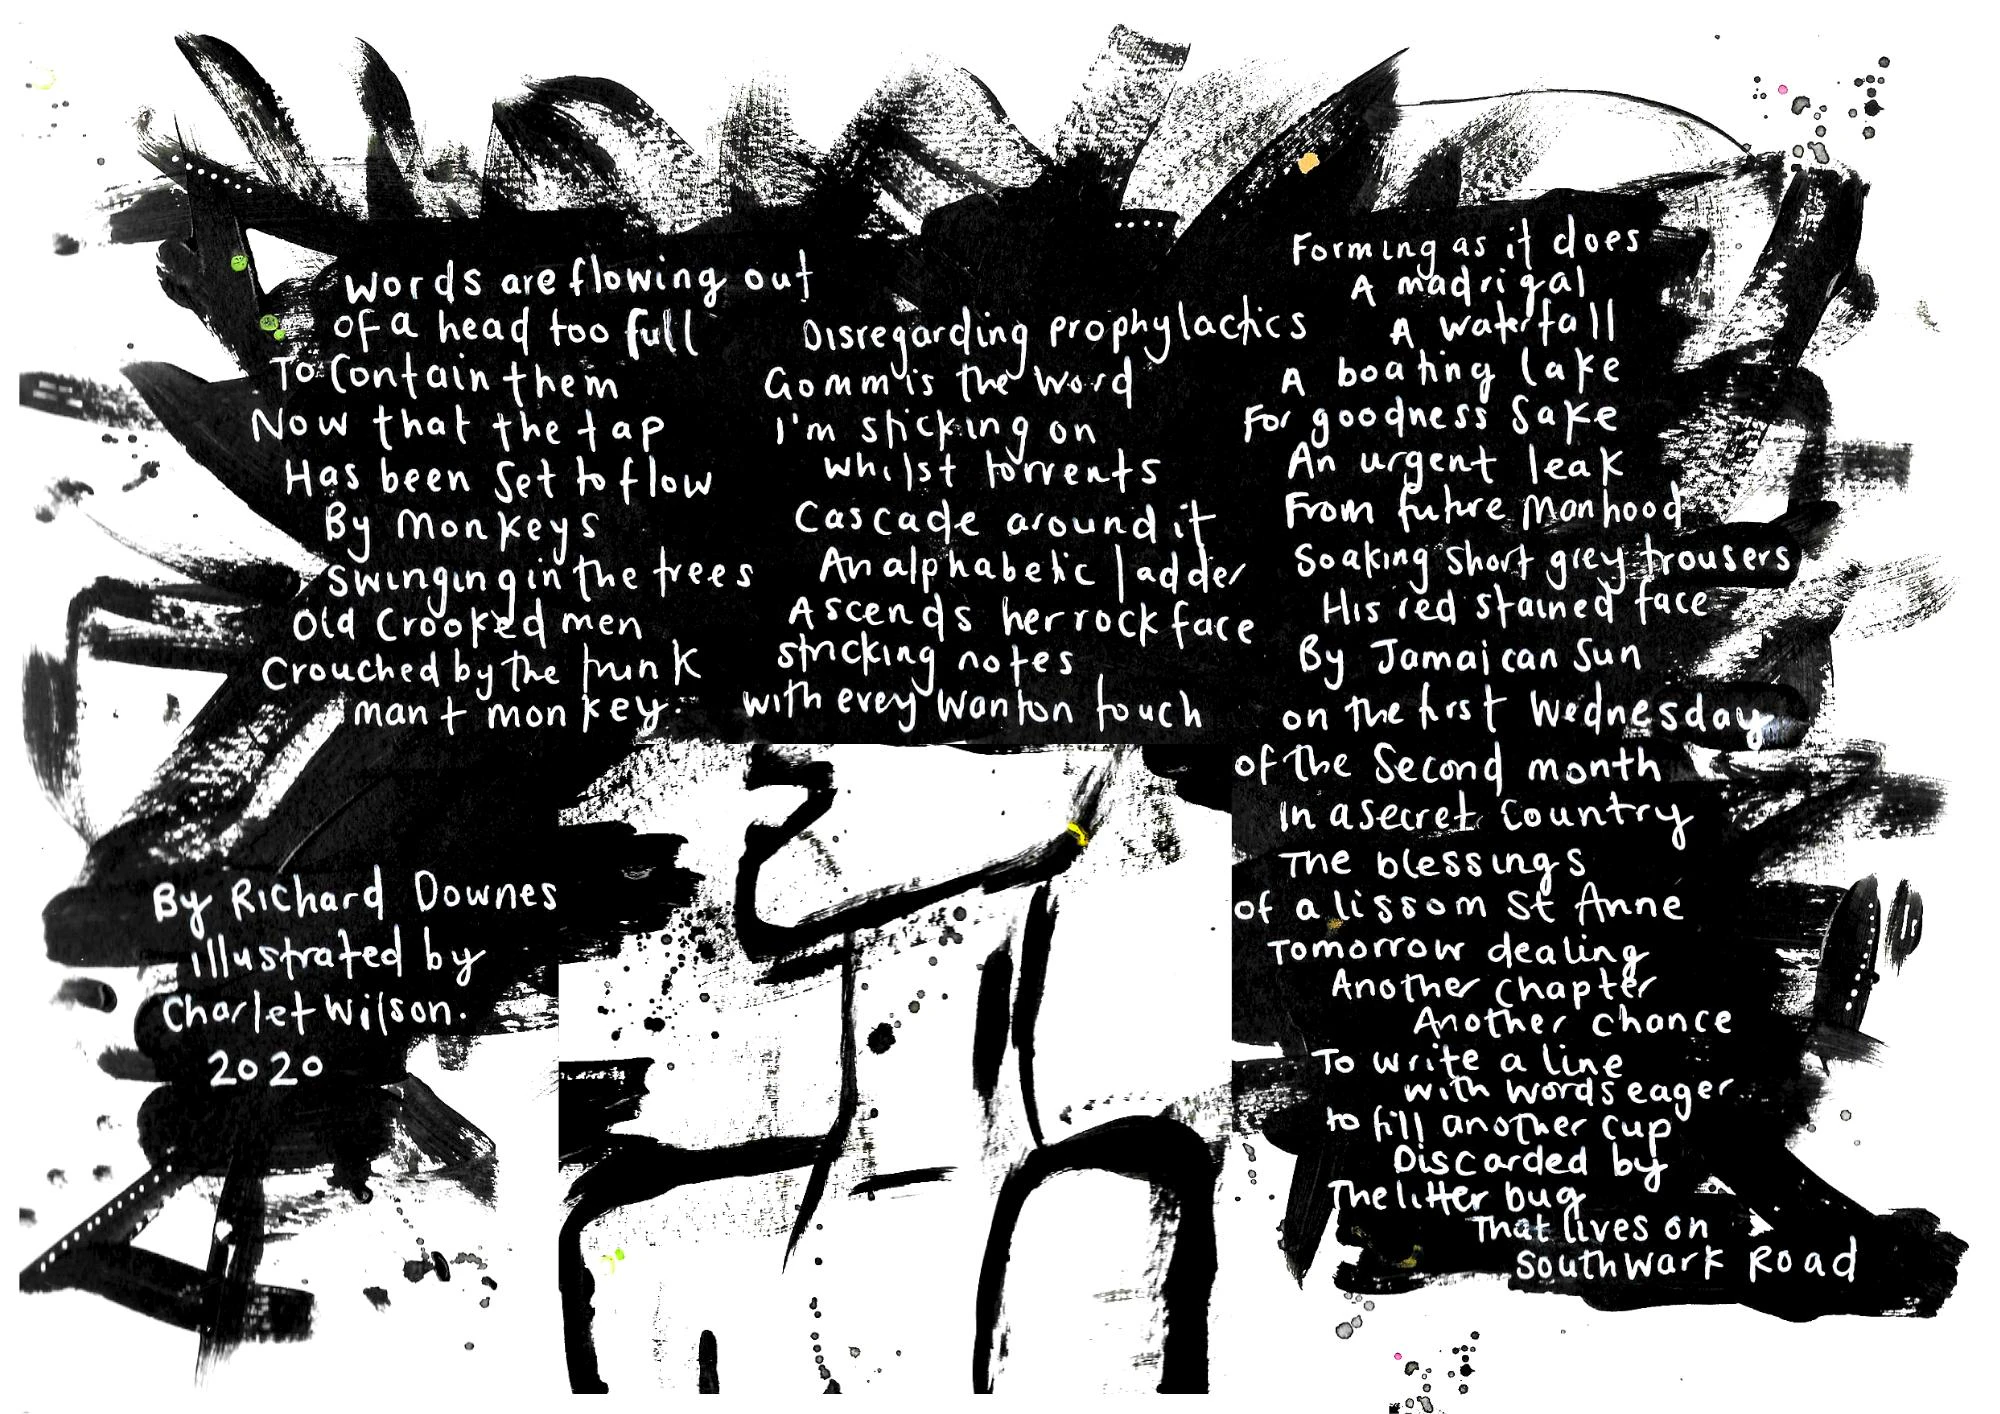 Words are flowing out
of a head too full
To Contain them
Now that the tap
Has been Set to flow
By Monkeys
Swinging in the trees
Old Crooked men
Crouched by the trunk
man + monkey.
Disregarding prophylactics
Gomm is the Word
I'm sticking on
whilst torrents
Cascade around it
An alphabetic ladder
Ascends her rock face
striking notes
with evey wanton touch
Forming as it does
A madrigal
A waterfall
A boating lake
For goodness Sake
An urgent leak
From future manhood
Soaking Short grey trousers
His red stained face
By Jamaican Sun
on the first Wednesday
of the Second month
In a secret Country
The blessings
of a lissom St Anne
Tomorrow dealing
Another chapter
Another chance
To write a line
with words eager
to fill another cup
Discarded by
The litter bug
That lives on
Southwark Road
By Richard Downes
illustrated by
Charlet Wilson.
2020